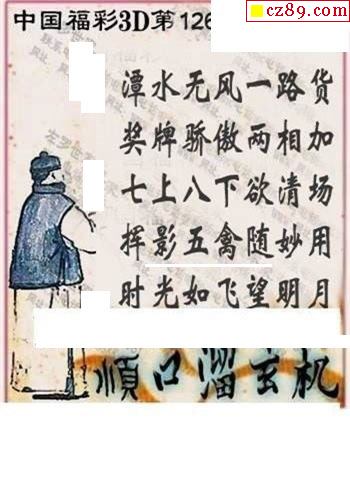 cz89.com
中国福彩3D第126
潭水无风一路货
奖牌骄傲两相加
七上八下欲清场
挥影五禽随妙用
时光如飞望明月
顺口溜玄机